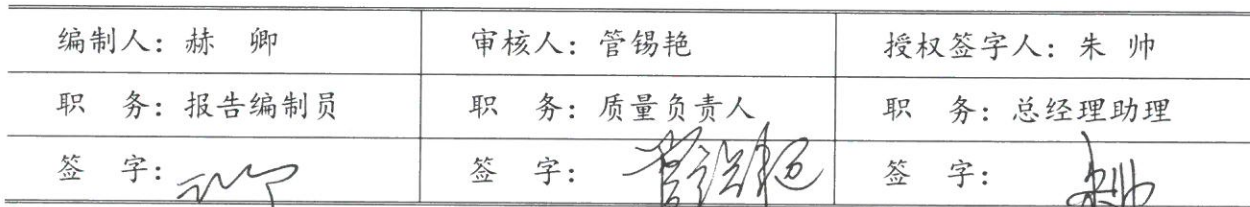 编制人：赫 卿 审核人：管锡艳 授权签字人：朱 帅
职 务：报告编制员 职 务：质量负责人 职 务：总经理助理
签 字： 签 字：管锡艳 签 字：朱帅